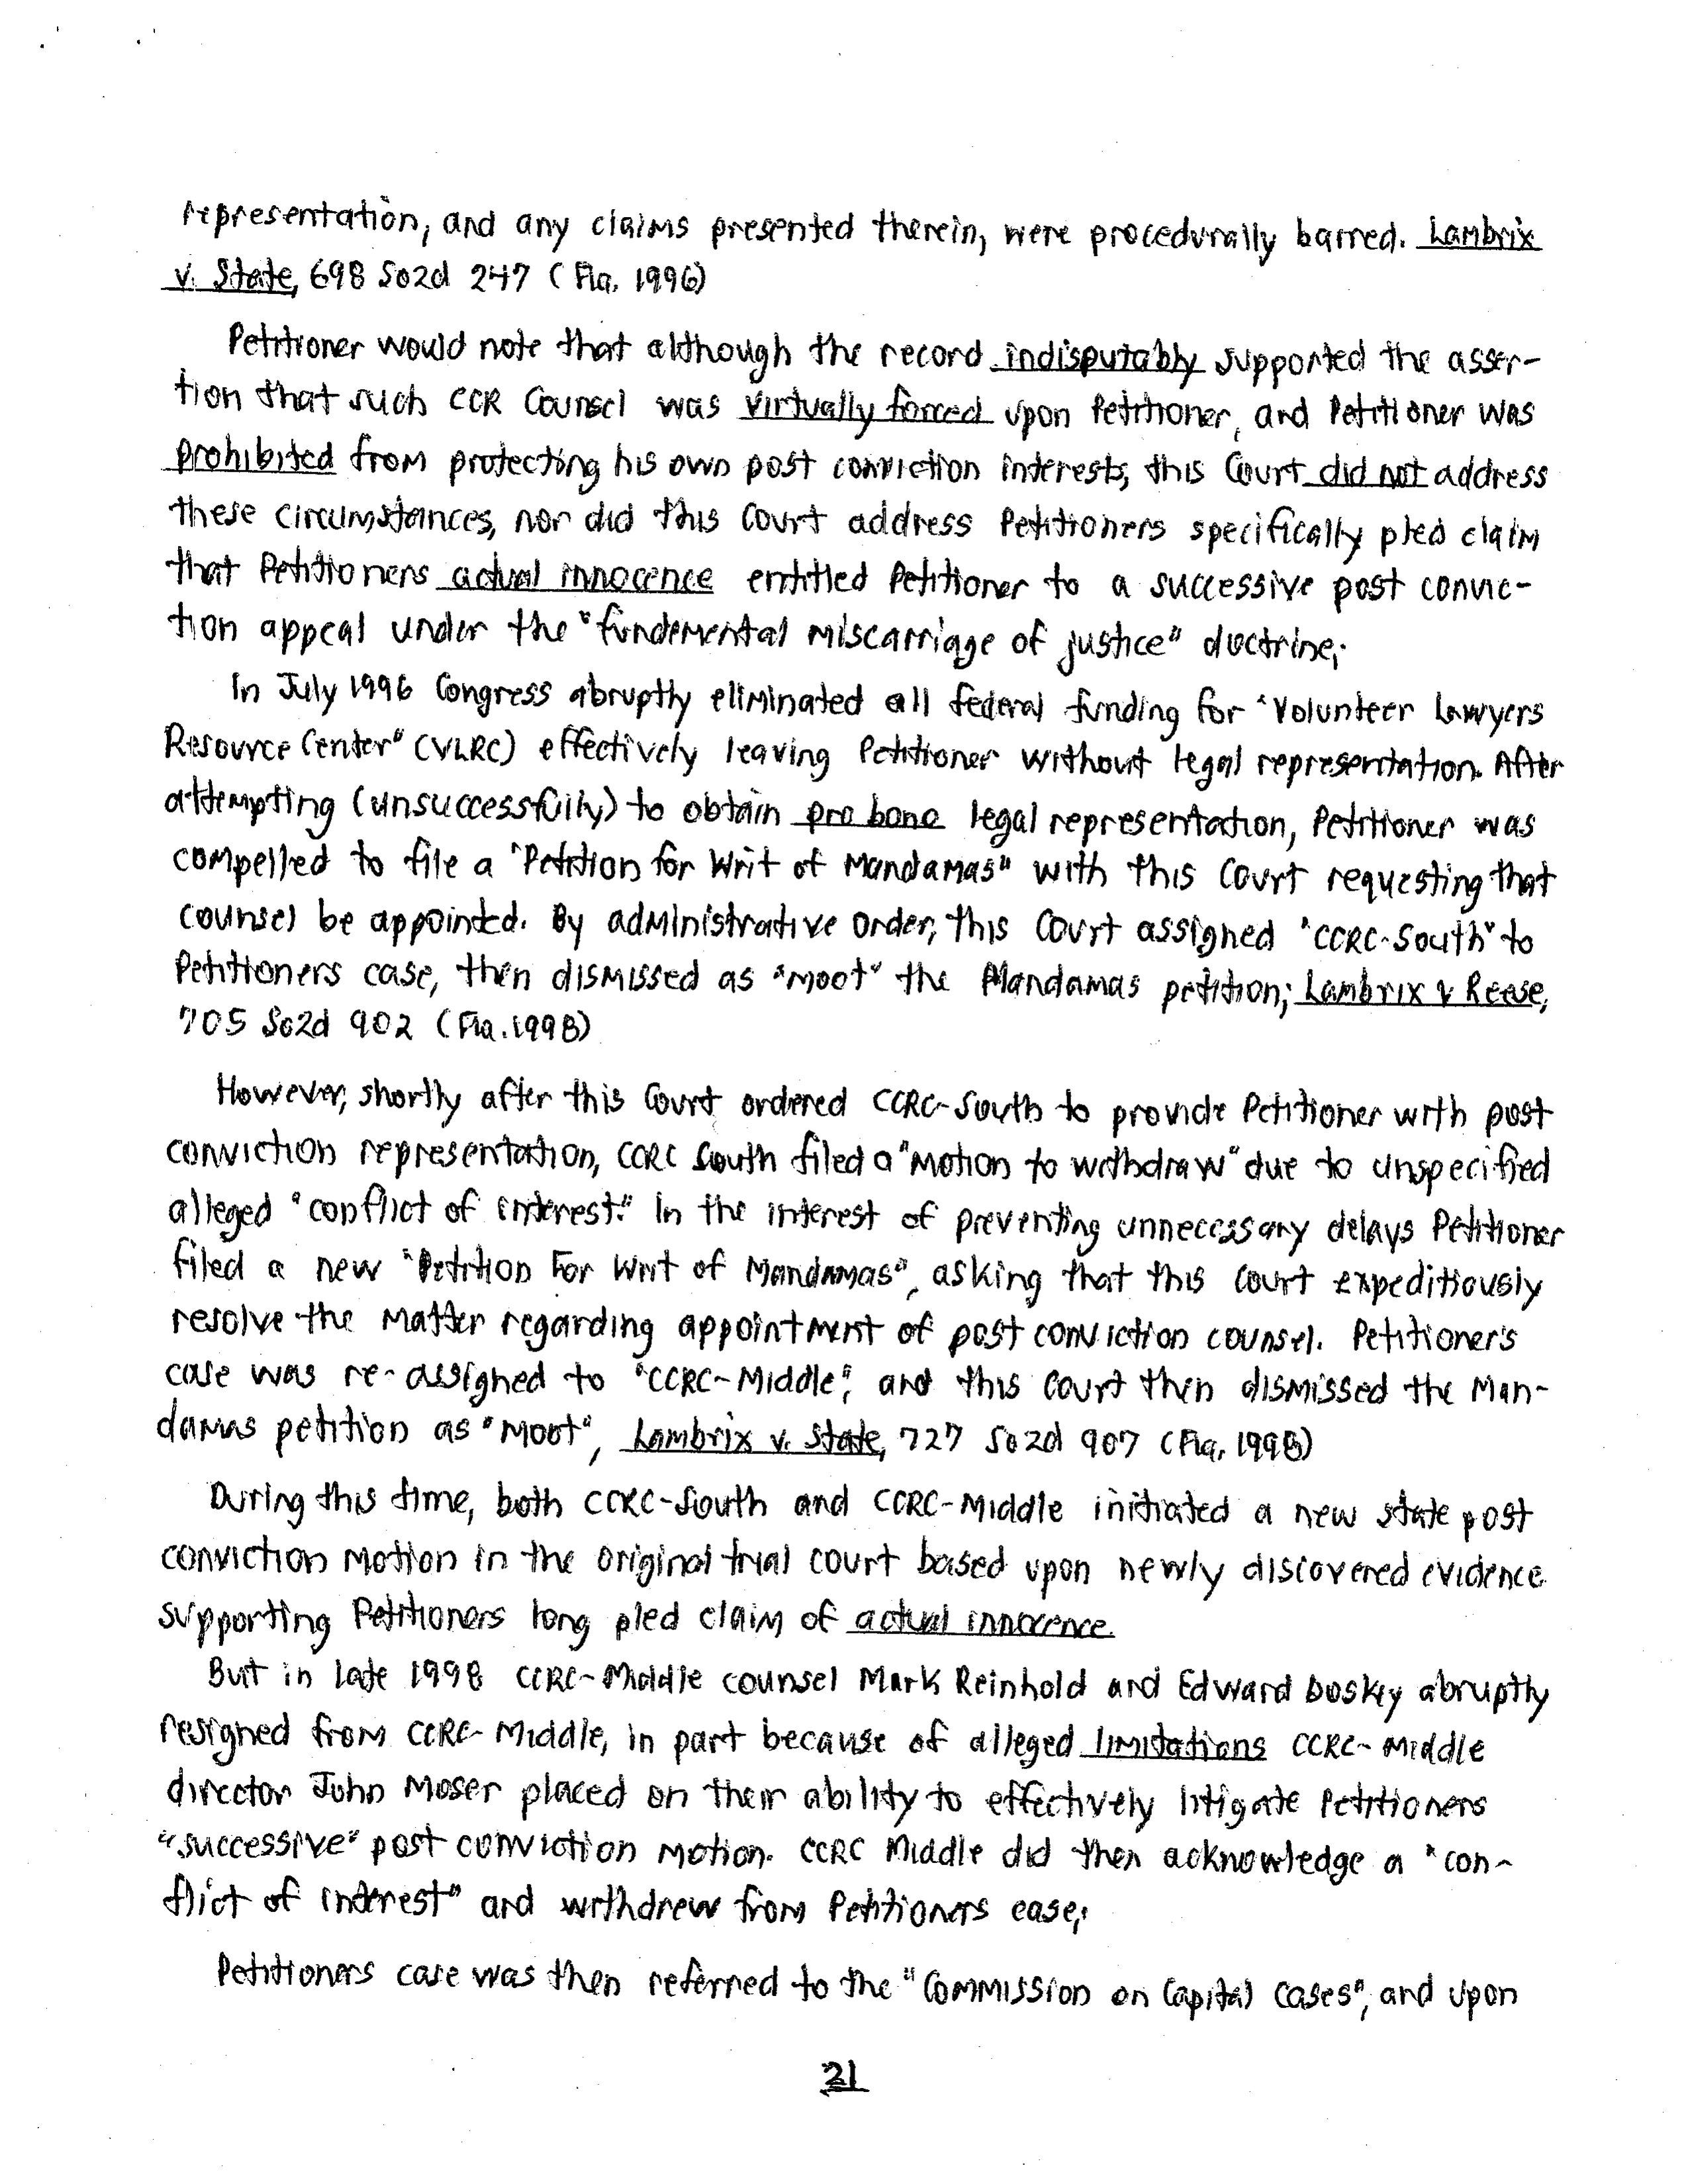 representation, and any claims presented therein, were procedurally barred. Lambrix
v. State, 698 So2d 247 (Fla. 1996)
Petitioner would note that although the record indisputably supported the asser-
tion that such CCR Counsel was virtually forced upon Petitioner, and Petitioner was
prohibited from protecting his own post conviction interests, this Court did not address
these circumstances, nor did this Court address Petitioners specifically pled claim
that Petitioners actual innocence entitled Petitioner to a successive post convic-
tion appeal under the "fundemental miscarriage of justice" doctrine;
In July 1996 Congress abruptly eliminated all federal funding for "Volunteer Lawyers
Resource Center" (VLRC) effectively leaving Petitioner without legal representation. After
attempting (unsuccessfully) to obtain pro bono legal representation, Petitioner was
compelled to file a "Petition for Writ of Mandamas" with this Court requesting that
counsel be appointed. By administrative order, this Court assigned "CCRC-South" to
Petitioners case, then dismissed as "moot" the Mandamas petition; Lambrix v Reese,
705 So2d 902 (Fla. 1998)
However, shortly after this Court ordered CCRC-South to provide Petitioner with post
conviction representation, CCRC South filed a "Motion to withdraw" due to unspecified
alleged "conflict of interest." In the interest of preventing unnecessary delays Petitioner
filed a new "Petition For Writ of Mandamas", asking that this Court expeditiously
resolve the matter regarding appointment of post conviction counsel. Petitioner's
case was re-assigned to "CCRC-Middle", and this Court then dismissed the Man-
damas petition as "moot", Lambrix v. State, 727 So2d 907 (Fla. 1998)
During this time, both CCRC-South and CCRC-Middle initiated a new state post
conviction motion in the original trial court based upon newly discovered evidence
supporting Petitioners long pled claim of actual innocence.
But in late 1998 CCRC-Middle counsel Mark Reinhold and Edward Doskey abruptly
resigned from CCRC-Middle, in part because of alleged limitations CCRC-Middle
director John Moser placed on their ability to effectively litigate Petitioners
"successive" post conviction motion. CCRC Middle did then acknowledge a "con-
flict of interest" and withdrew from Petitioners case;
Petitioners case was then referred to the "Commission on Capital Cases", and upon
21